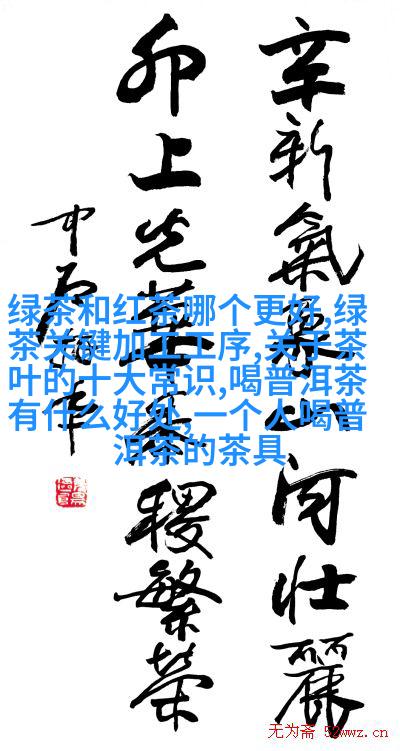 辛新氣象山河壯麗
卯上光華春稷繁榮
绿茶和红茶哪个更好,绿
茶关键加工工序,关于茶
叶的十大常识,喝普洱茶
有什么好处,一个人喝普
洱茶的茶具
无为斋 52wwz.cn